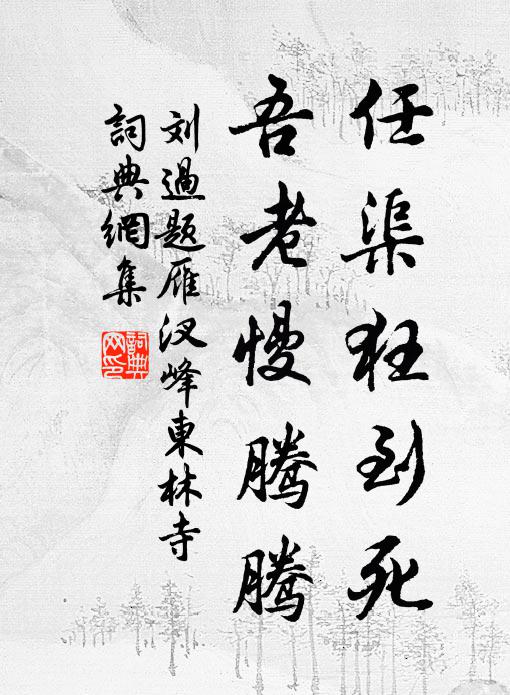 任渠狂到死
吾老慢腾腾
刘過题雁汊峰東林寺
詞典網集
詞典網印